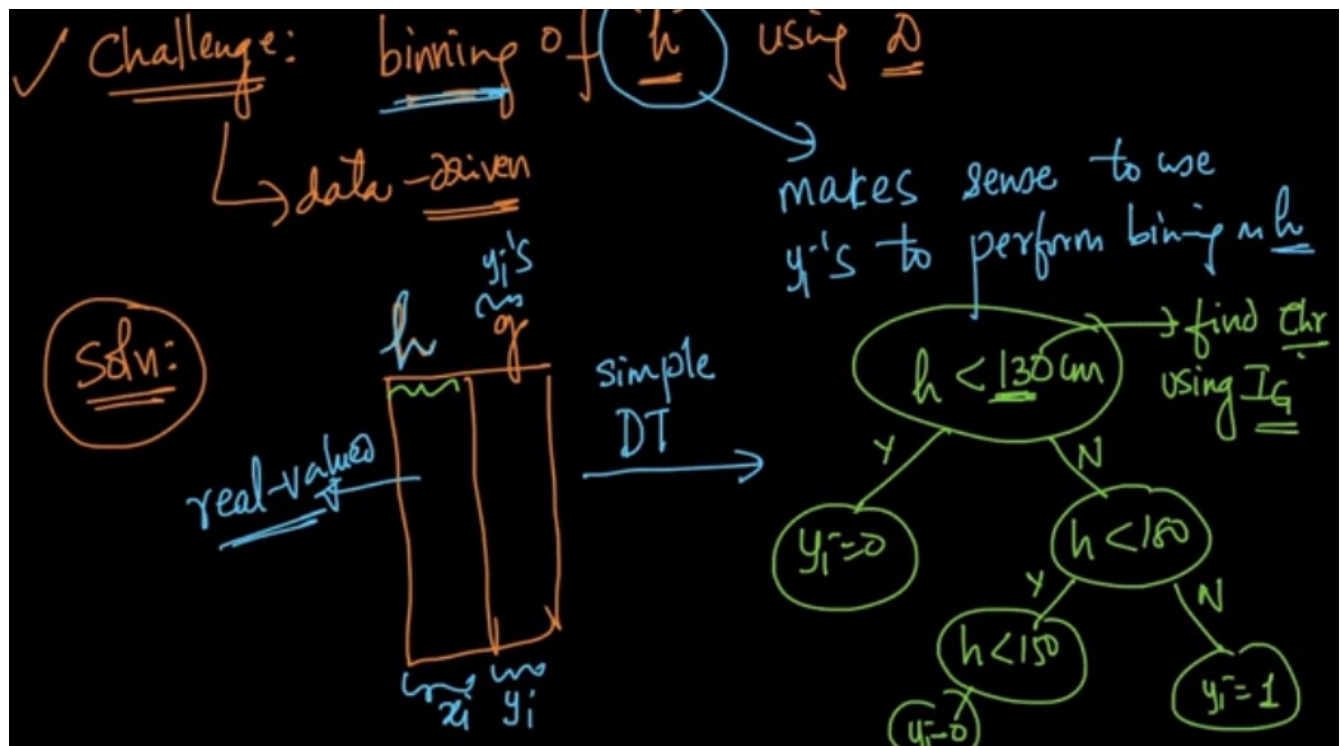 ✓ Challenge: binning of h using D
↳ data-driven
makes sense to use
yi's to perform bining h
yi's
h g
Soln:
real-values
simple
DT
xi yi
h < 130 cm
→ find thr
using IG
Y N
yi=0
h < 180
Y N
h < 150
yi=1
yi=0